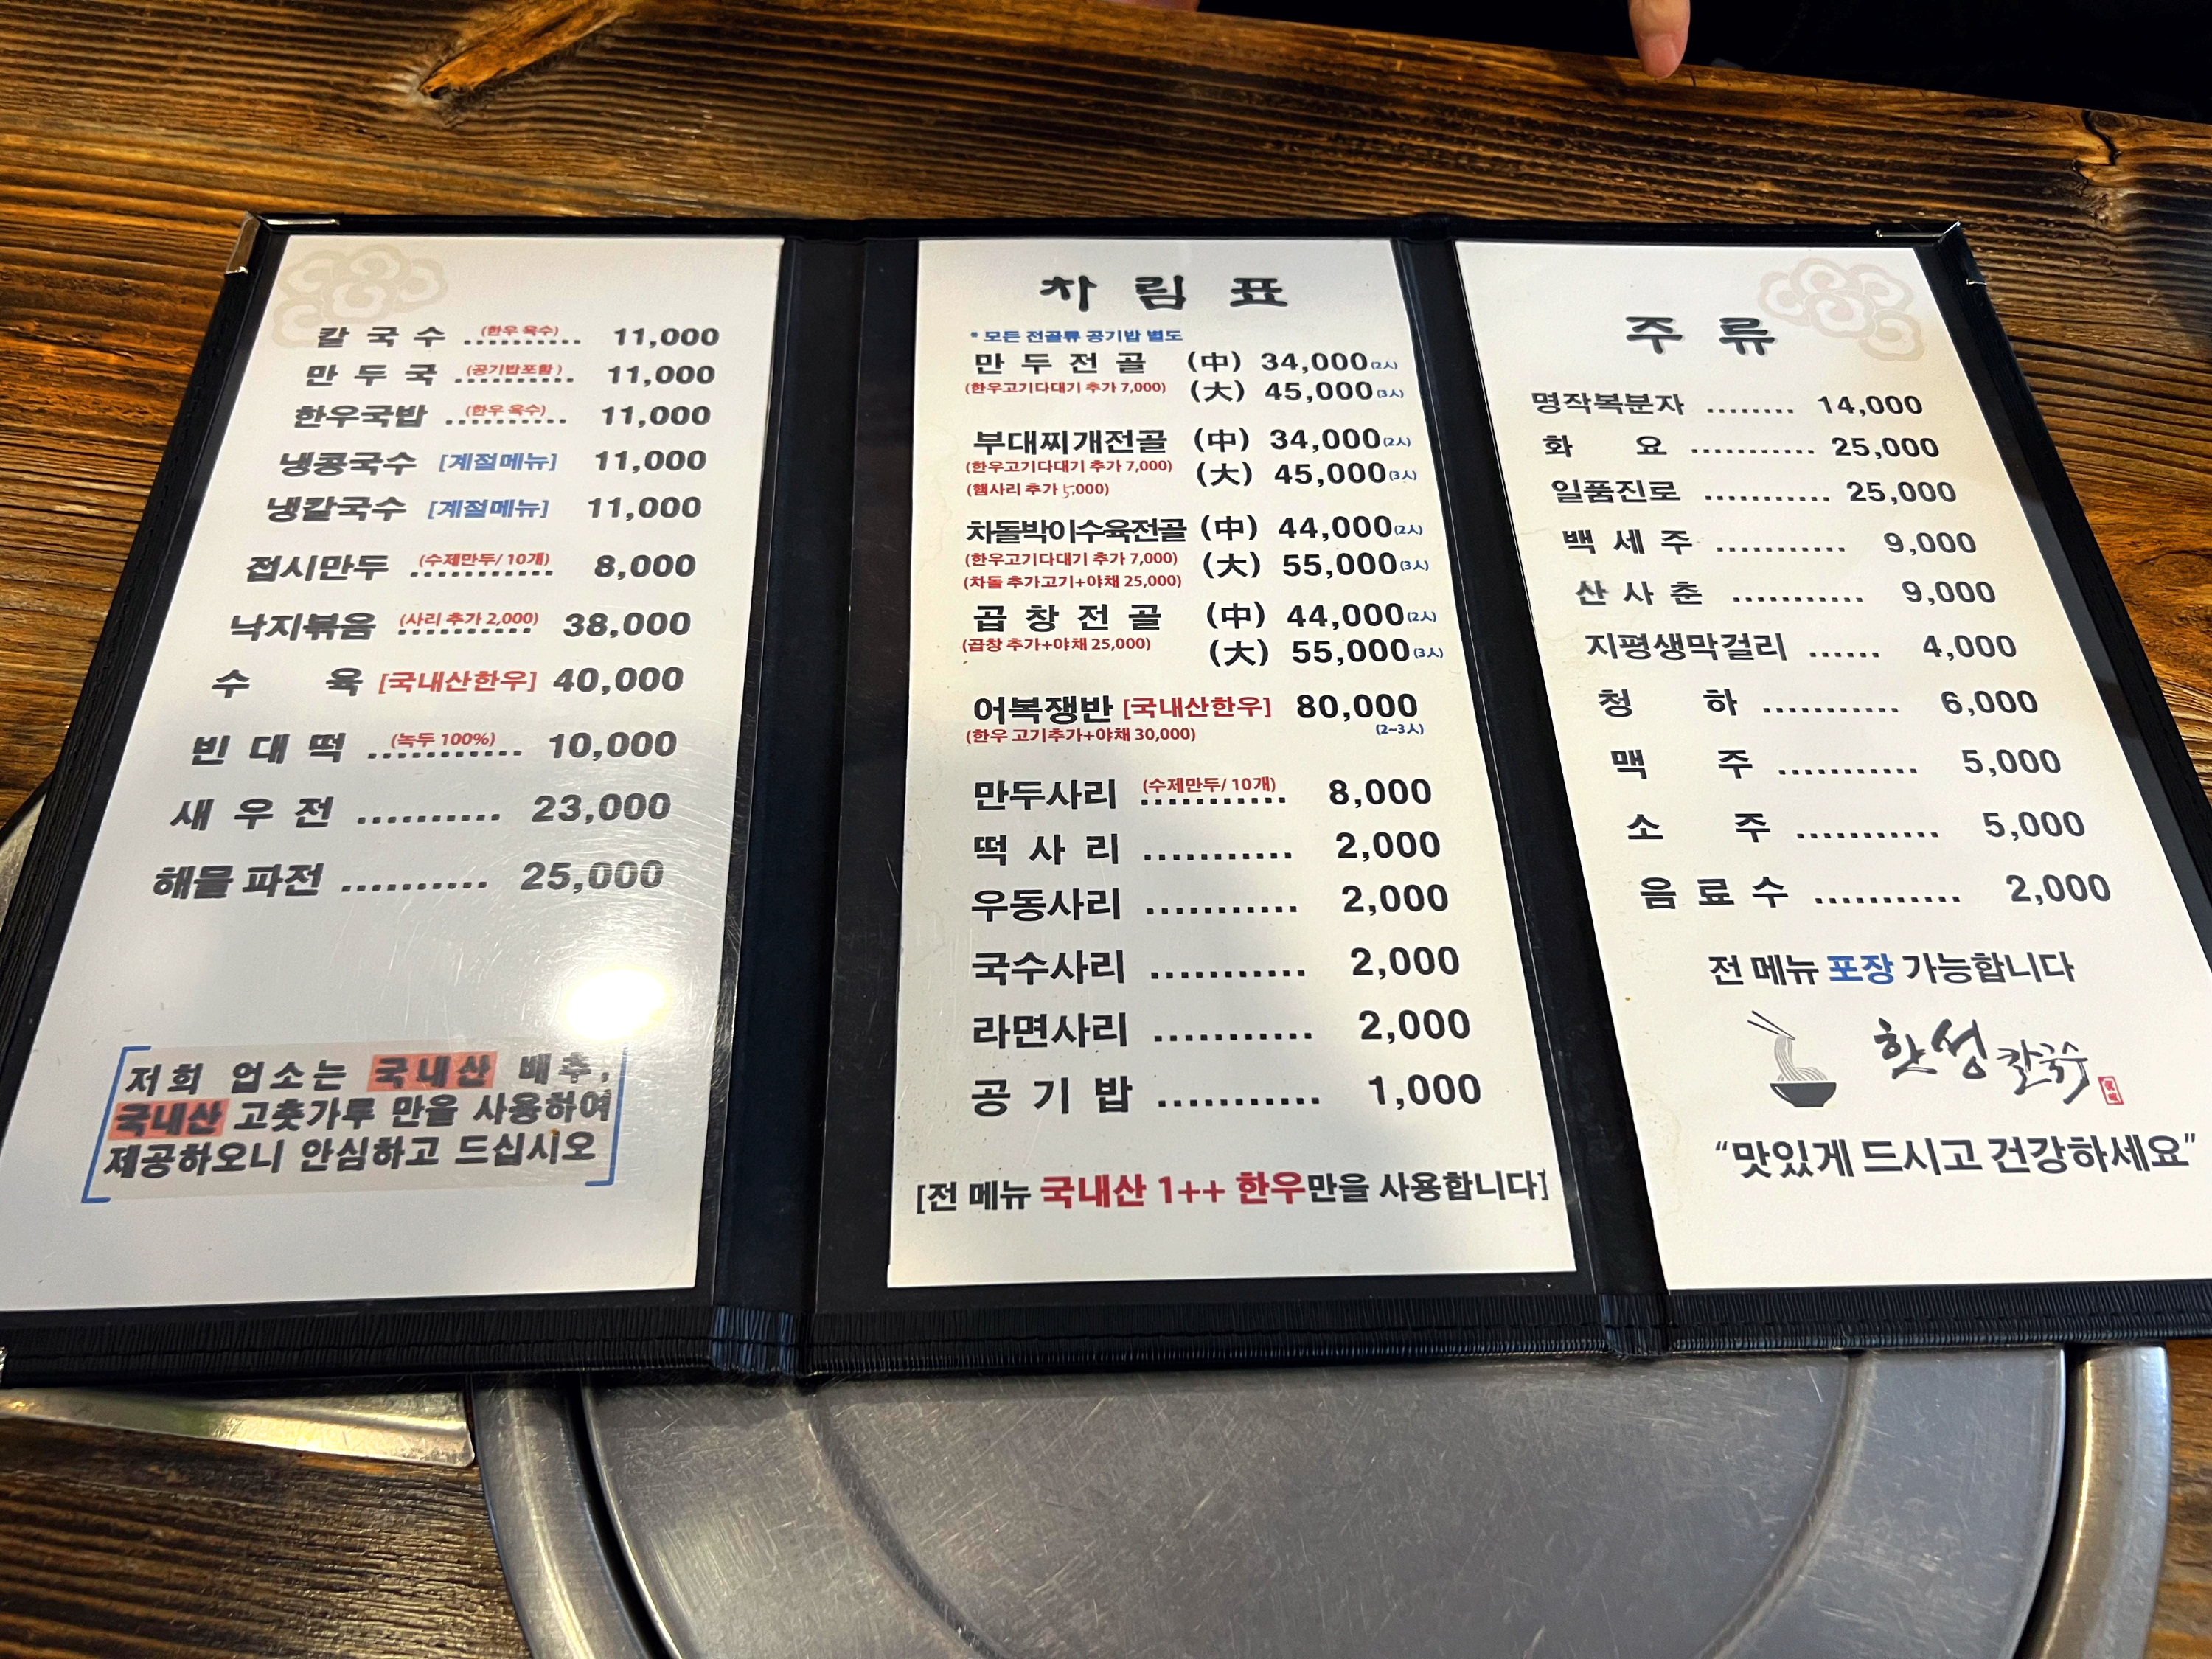 칼 국 수 .......... (한우 육수) 11,000
만 두 국 .......... (공기밥포함) 11,000
한우국밥 .......... (한우 육수) 11,000
냉콩국수 [계절메뉴] 11,000
냉칼국수 [계절메뉴] 11,000
접시만두 .......... (수제만두/10개) 8,000
낙지볶음 .......... (사리 추가 2,000) 38,000
수 육 [국내산한우] 40,000
빈 대 떡 .......... (녹두 100%) 10,000
새 우 전 .......... 23,000
해물 파전 .......... 25,000
저희 업소는 국내산 배추,
국내산 고춧가루 만을 사용하여
제공하오니 안심하고 드십시오
차 림 표
* 모든 전골류 공기밥 별도
만 두 전 골 (中) 34,000(2人)
(한우고기다대기 추가 7,000) (大) 45,000(3人)
부대찌개전골 (中) 34,000(2人)
(한우고기다대기 추가 7,000) (大) 45,000(3人)
(햄사리 추가 5,000)
차돌박이수육전골 (中) 44,000(2人)
(한우고기다대기 추가 7,000) (大) 55,000(3人)
(차돌 추가고기+야채 25,000)
곱 창 전 골 (中) 44,000(2人)
(곱창 추가+야채 25,000) (大) 55,000(3人)
어복쟁반 [국내산한우] 80,000
(한우 고기추가+야채 30,000) (2~3人)
만두사리 ........... (수제만두/10개) 8,000
떡 사 리 ........... 2,000
우동사리 ........... 2,000
국수사리 ........... 2,000
라면사리 ........... 2,000
공 기 밥 ........... 1,000
[전 메뉴 국내산 1++ 한우만을 사용합니다]
주 류
명작복분자 ........ 14,000
화 요 ........... 25,000
일품진로 ........... 25,000
백 세 주 ........... 9,000
산 사 춘 ........... 9,000
지평생막걸리 ...... 4,000
청 하 ........... 6,000
맥 주 ........... 5,000
소 주 ........... 5,000
음 료 수 ........... 2,000
전 메뉴 포장 가능합니다
한성 칼국수
“맛있게 드시고 건강하세요”